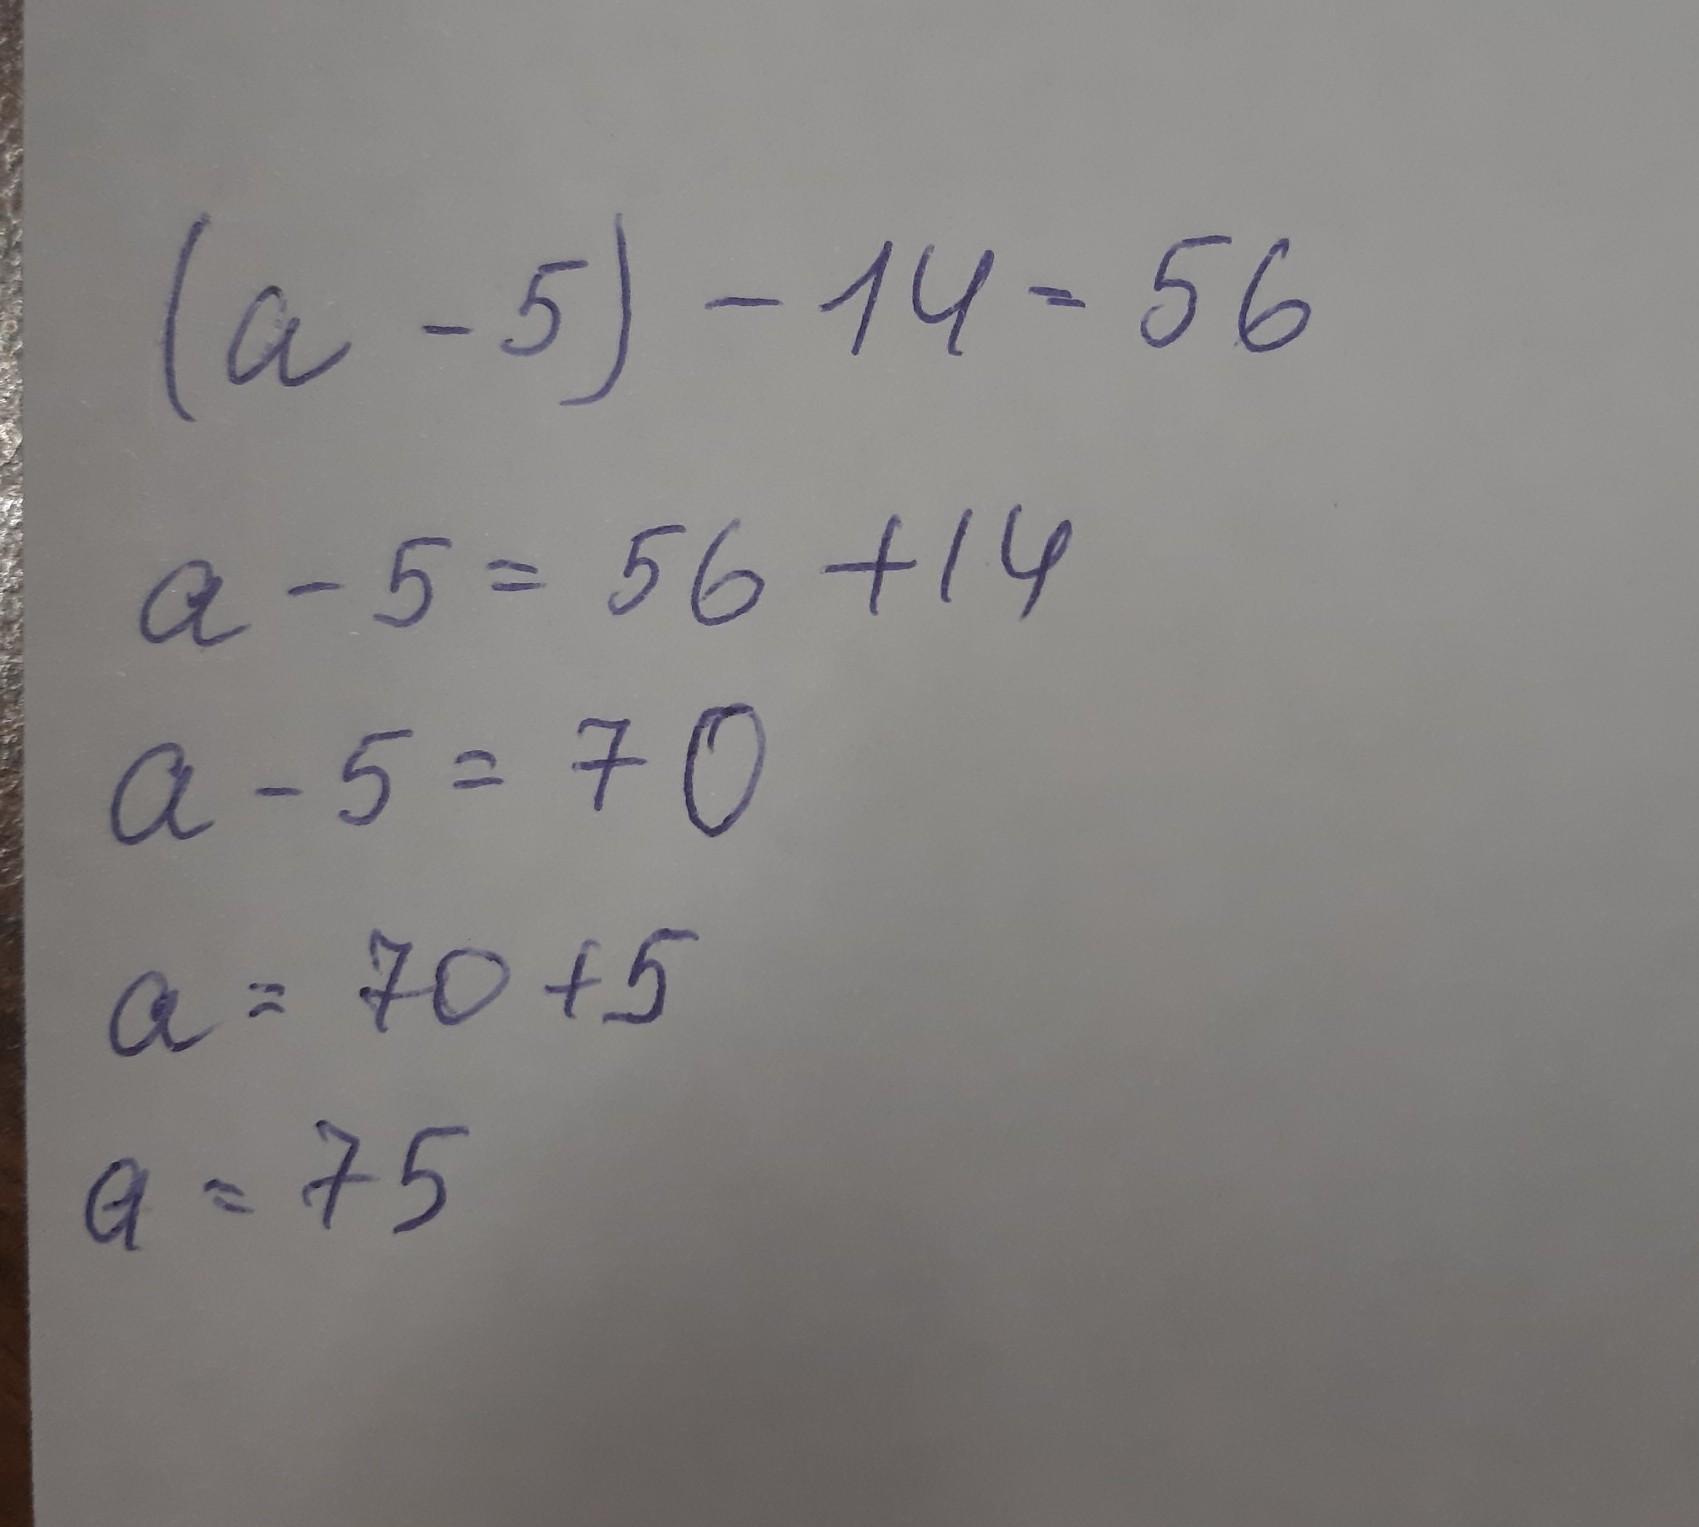 (a - 5) - 14 = 56
a - 5 = 56 + 14
a - 5 = 70
a = 70 + 5
a = 75